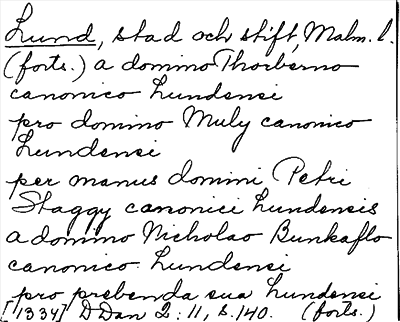 Lund, stad och stift, Malm. l.
(forts.) a domino Thorberno
canonico Lundensi
pro domino Muly canonico
Lundensi
per manus domini Petri
Staggy canonici Lundensis
a domino Nicholao Bunkaflo
canonico Lundensi
pro prebenda sua Lundensi
[1334] DDan 2:11, s.140. (forts.)